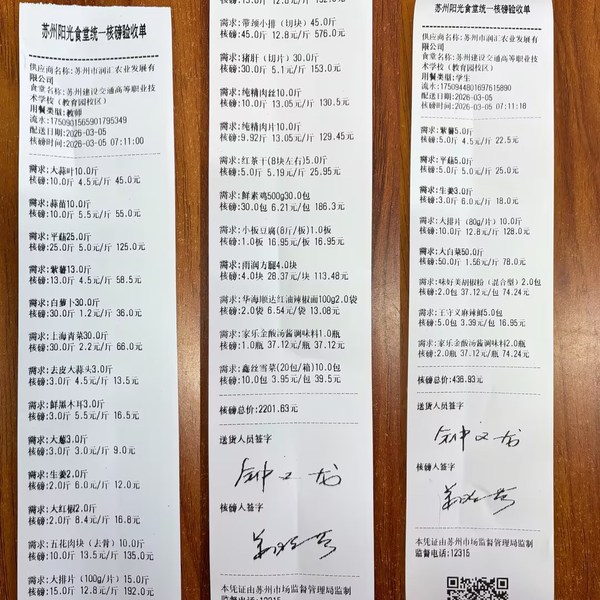 苏州阳光食堂统一核磅验收单
供应商名称:苏州市润汇农业发展有
限公司
食堂名称:苏州建设交通高等职业技
术学校（教育园校区）
用餐类型:教师
流水:1750901565901795349
配送日期:2026-03-05
核磅时间:2026-03-05 07:11:00
需求:大蒜叶10.0斤
核磅:10.0斤 4.5元/斤 45.0元
需求:蒜苗10.0斤
核磅:10.0斤 5.5元/斤 55.0元
需求:平菇25.0斤
核磅:25.0斤 5.0元/斤 125.0元
需求:紫薯13.0斤
核磅:13.0斤 4.5元/斤 58.5元
需求:白萝卜30.0斤
核磅:30.0斤 1.2元/斤 36.0元
需求:上海青菜30.0斤
核磅:30.0斤 2.2元/斤 66.0元
需求:去皮大蒜头3.0斤
核磅:3.0斤 4.5元/斤 13.5元
需求:鲜黑木耳3.0斤
核磅:3.0斤 5.5元/斤 16.5元
需求:大葱3.0斤
核磅:3.0斤 3.0元/斤 9.0元
需求:生姜2.0斤
核磅:2.0斤 6.0元/斤 12.0元
需求:大红椒2.0斤
核磅:2.0斤 8.4元/斤 16.8元
需求:五花肉块（去骨）10.0斤
核磅:10.0斤 13.5元/斤 135.0元
需求:大排片（100g/片）15.0斤
核磅:15.0斤 12.8元/斤 192.0元
需求:带颈小排（切块）45.0斤
核磅:45.0斤 12.8元/斤 576.0元
需求:猪肝（切片）30.0斤
核磅:30.0斤 5.1元/斤 153.0元
需求:纯精肉丝10.0斤
核磅:10.0斤 13.05元/斤 130.5元
需求:纯精肉片10.0斤
核磅:9.92斤 13.05元/斤 129.45元
需求:红茶干(8块左右)5.0斤
核磅:5.0斤 5.19元/斤 25.95元
需求:鲜素鸡500g30.0包
核磅:30.0包 6.21元/包 186.3元
需求:小板豆腐(8斤/板)1.0板
核磅:1.0板 16.95元/板 16.95元
需求:雨润方腿4.0块
核磅:4.0块 28.37元/块 113.48元
需求:华海顺达红油辣椒面100g2.0袋
核磅:2.0袋 6.54元/袋 13.08元
需求:家乐金酸汤酱调味料1.0瓶
核磅:1.0瓶 37.12元/瓶 37.12元
需求:鑫丝雪菜(20包/箱)10.0包
核磅:10.0包 3.95元/包 39.5元
核磅总价:2201.63元
送货人员签字
核磅人签字
本凭证由苏州市场监督管理局监制
监督电话:12315
苏州阳光食堂统一核磅验收单
供应商名称:苏州市润汇农业发展有
限公司
食堂名称:苏州建设交通高等职业技
术学校（教育园校区）
用餐类型:学生
流水:1750944801697615890
配送日期:2026-03-05
核磅时间:2026-03-05 07:11:18
需求:紫薯5.0斤
核磅:5.0斤 4.5元/斤 22.5元
需求:平菇5.0斤
核磅:5.0斤 5.0元/斤 25.0元
需求:生姜3.0斤
核磅:3.0斤 6.0元/斤 18.0元
需求:大排片（80g/片）10.0斤
核磅:10.0斤 12.8元/斤 128.0元
需求:大白菜50.0斤
核磅:50.0斤 1.56元/斤 78.0元
需求:味好美胡椒粉（混合型）2.0包
核磅:2.0包 37.12元/包 74.24元
需求:王守义麻辣鲜5.0包
核磅:5.0包 3.39元/包 16.95元
需求:家乐金酸汤酱调味料2.0瓶
核磅:2.0瓶 37.12元/瓶 74.24元
核磅总价:436.93元
送货人员签字
核磅人签字
本凭证由苏州市场监督管理局监制
监督电话:12315